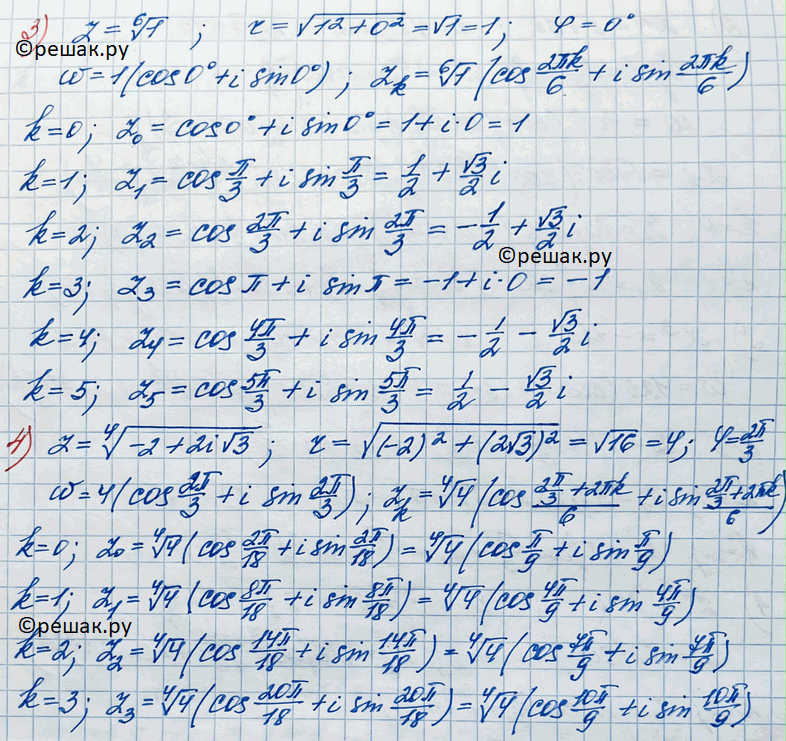 3) z = ⁶√1 ; r = √(1² + 0²) = √1 = 1; φ = 0°
©решак.ру
w = 1(cos 0° + i sin 0°) ; z_k = ⁶√1 (cos 2πk/6 + i sin 2πk/6)
k=0; z₀ = cos 0° + i sin 0° = 1 + i·0 = 1
k=1; z₁ = cos π/3 + i sin π/3 = 1/2 + √3/2 i
k=2; z₂ = cos 2π/3 + i sin 2π/3 = -1/2 + √3/2 i
©решак.ру
k=3; z₃ = cos π + i sin π = -1 + i·0 = -1
k=4; z₄ = cos 4π/3 + i sin 4π/3 = -1/2 - √3/2 i
k=5; z₅ = cos 5π/3 + i sin 5π/3 = 1/2 - √3/2 i
4) z = ⁴√(-2 + 2i√3) ; r = √((-2)² + (2√3)²) = √16 = 4; φ = 2π/3
w = 4(cos 2π/3 + i sin 2π/3) ; z_k = ⁴√4 (cos (2π/3 + 2πk)/6 + i sin (2π/3 + 2πk)/6)
k=0; z₀ = ⁴√4 (cos 2π/18 + i sin 2π/18) = ⁴√4 (cos π/9 + i sin π/9)
k=1; z₁ = ⁴√4 (cos 8π/18 + i sin 8π/18) = ⁴√4 (cos 4π/9 + i sin 4π/9)
©решак.ру
k=2; z₂ = ⁴√4 (cos 14π/18 + i sin 14π/18) = ⁴√4 (cos 7π/9 + i sin 7π/9)
k=3; z₃ = ⁴√4 (cos 20π/18 + i sin 20π/18) = ⁴√4 (cos 10π/9 + i sin 10π/9)